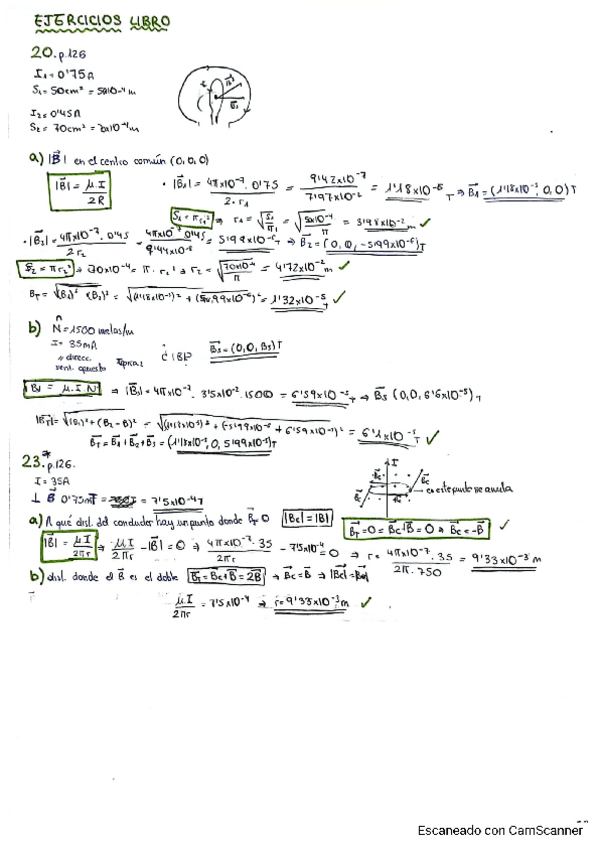 EJERCICIOS LIBRO
20. p.126
I₁ = 0'75A
S₁ = 50cm² = 50x10⁻⁴m
I₂ = 0'45A
S₂ = 70cm² = 70x10⁻⁴m
a) |B⃗| en el centro común (0,0,0)
|B⃗| = μ.I / 2R
· |B⃗₁| = 4πx10⁻⁷. 0'75 / 2·r₁ = 9'42x10⁻⁷ / 7'97x10⁻² = 1'18x10⁻⁵ T ⇒ B⃗₁ = (1'18x10⁻⁵, 0, 0) T
S₁ = πr₁² ⇒ r₁ = √S₁/π = √50x10⁻⁴/π = 3'98x10⁻² m ✓
· |B⃗₂| = 4πx10⁻⁷. 0'45 / 2r₂ = 4πx10⁻⁷ 0'45 / 9'44x10⁻² = 5'99x10⁻⁶ T ⇒ B⃗₂ = (0, 0, -5'99x10⁻⁶) T
S₂ = πr₂² → 70x10⁻⁴ = π. r₂² → r₂ = √70x10⁻⁴/π = 4'72x10⁻² m ✓
B_T = √(B₁)² + (B₂)² = √(1'18x10⁻⁵)² + (5'99x10⁻⁶)² = 1'32x10⁻⁵ T ✓
b) N = 1500 vueltas/m
I = 35mA
// direcc.
sent. opuesto
¿|B|?
B⃗₃ = (0,0,B₃) T
|B| = μ.I.N ⇒ |B₃| = 4πx10⁻⁷. 3'5x10⁻². 1500 = 6'59x10⁻⁵ T ⇒ B⃗₃ (0,0,6'6x10⁻⁵) T
|B_T| = √(B₁)² + (B₂-B)² = √(1'18x10⁻⁵)² + (-5'99x10⁻⁶ + 6'59x10⁻⁵)² = 6'1x10⁻⁵ T ✓
B⃗_T = B⃗₁ + B⃗₂ + B⃗₃ = (1'18x10⁻⁵, 0, 5'99x10⁻⁵) T
23.* p.126.
I = 35A
⊥ B⃗ 0'75mT = 7'5x10⁻⁴ T
I
B⃗c
B⃗c
en este punto se anula
a) A qué dist. del conductor hay un punto donde B⃗_T 0 |Bc| = |B|
B⃗_T = 0 = B⃗c + B⃗ = 0 ⇒ B⃗c = -B⃗ ✓
|B⃗| = μI / 2πr ⇒ μ.I / 2πr - |B| = 0 ⇒ 4πx10⁻⁷. 35 / 2πr - 7'5x10⁻⁴ = 0 ⇒ r = 4πx10⁻⁷. 35 / 2π. 750 = 9'33x10⁻³ m
b) dist. donde el B⃗ es el doble B⃗_T = B⃗c + B⃗ = 2B⃗ ⇒ B⃗c = B⃗ ⇒ |B⃗c| = |B⃗|
μI / 2πr = 7'5x10⁻⁴ ⇒ r = 9'33x10⁻³ m ✓
Escaneado con CamScanner